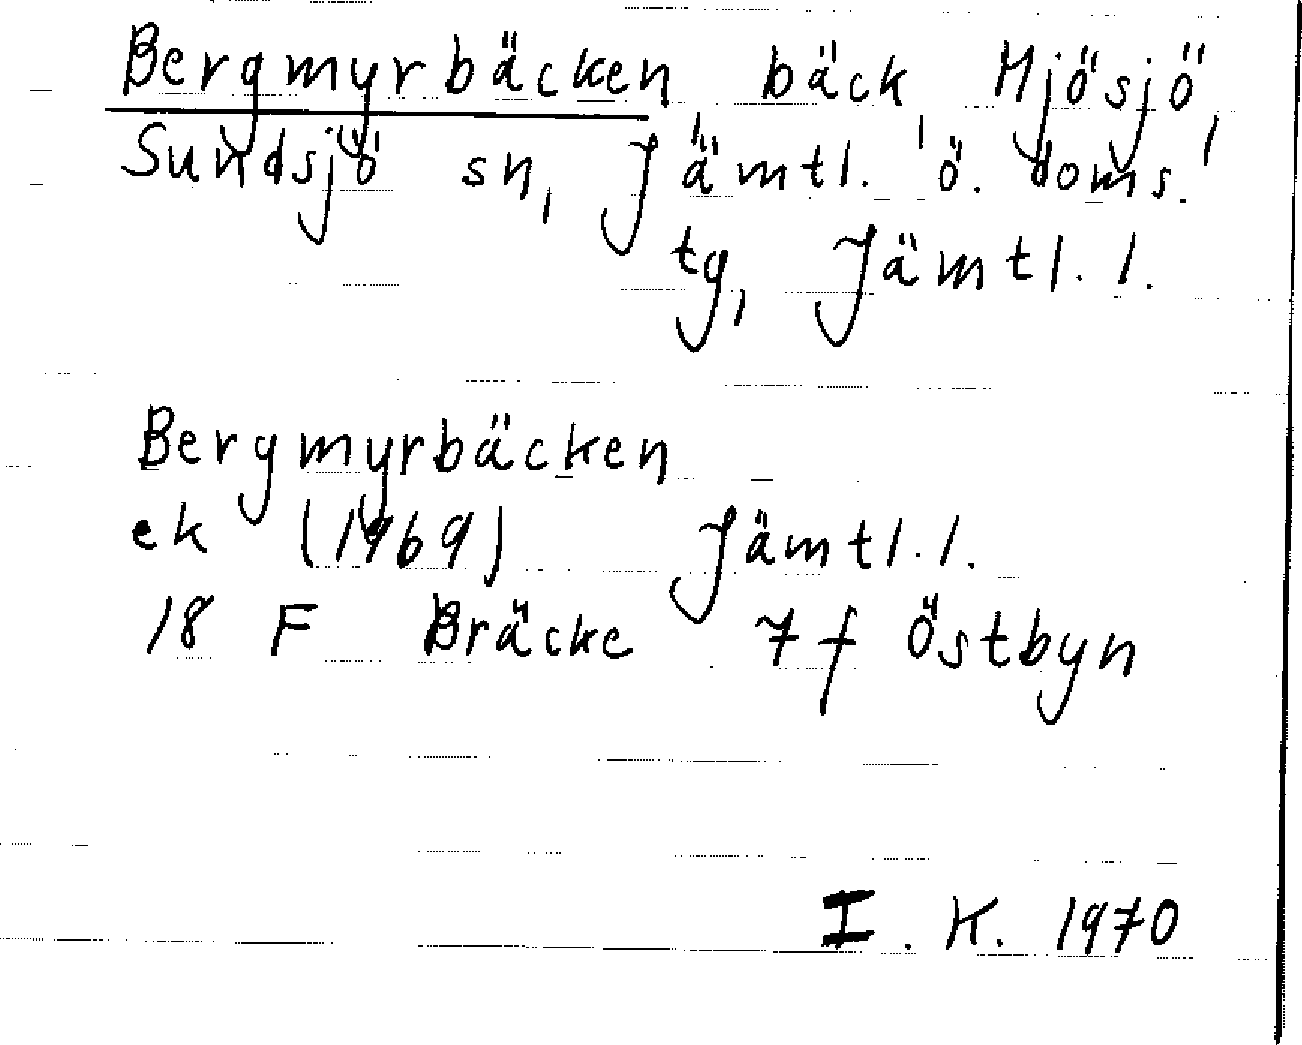 Bergmyrbäcken, bäck, Mjösjö,
Sundsjö sn, Jämtl. ö. doms.
tg, Jämtl. l.
Bergmyrbäcken
ek (1969) Jämtl. l.
18 F Bräcke 7 f Östbyn
I. K. 1970